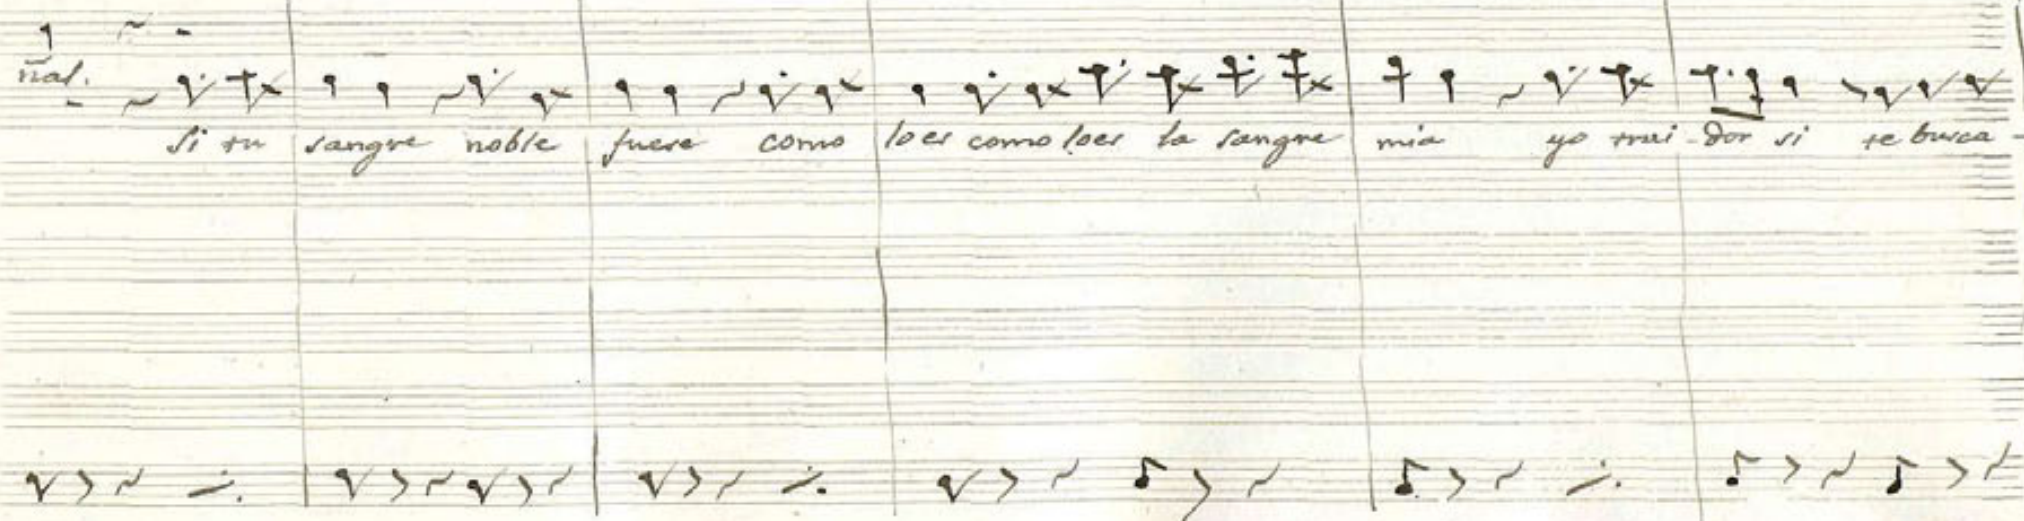 nal.
si tu sangre noble fuere como lo es como loes la sangre mia yo trai-dor si te busca-